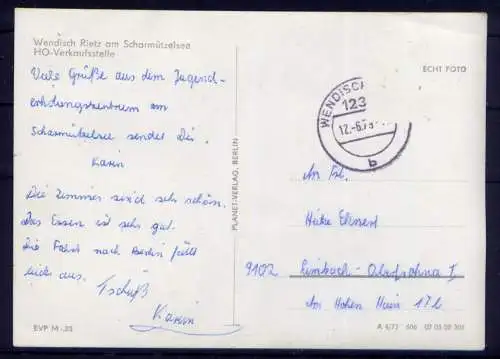 Wendisch Rietz am Scharmützelsee
HO-Verkaufsstelle
Viele Grüße aus dem Jugend-
erholungszentrum am
Scharmützelsee sendet Dir
Karin
Die Zimmer sind sehr schön.
Das Essen ist sehr gut.
Die Fahrt nach Berlin fällt
leider aus.
Tschüß
Karin
EVP M -,25
PLANET-VERLAG, BERLIN
ECHT FOTO
WENDISCH
123
12.-6.73
b
An Frl.
Heike
9102 Limbach-Oberfrohna I
Am Hohen Hain 17b
A 4/73 606 07 03 09 301